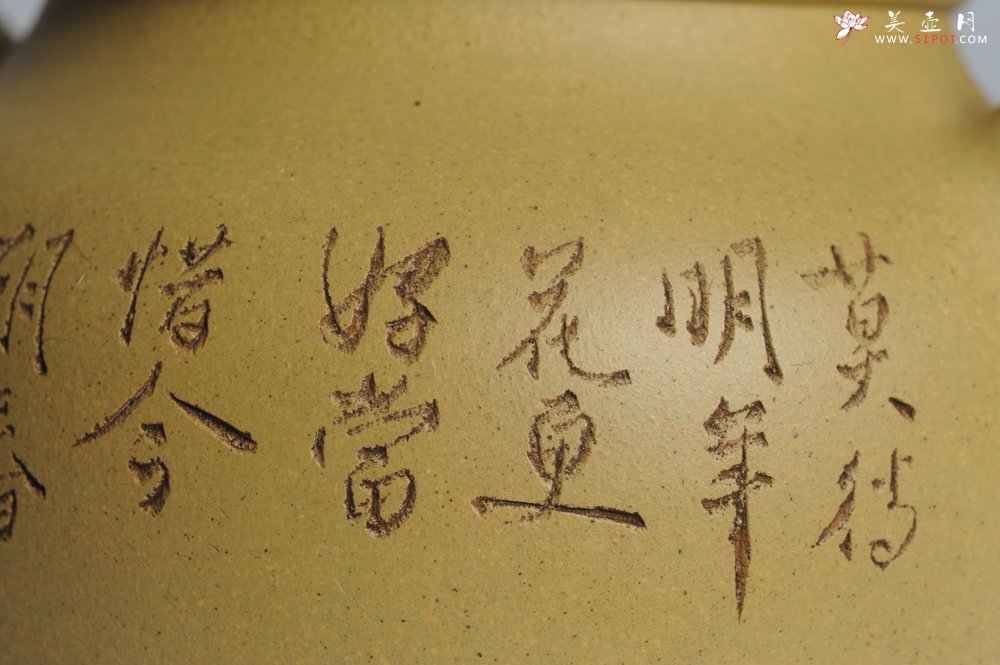 莫待
明年
花更
好當
惜今
朝
美壶月
WWW.51POT.COM